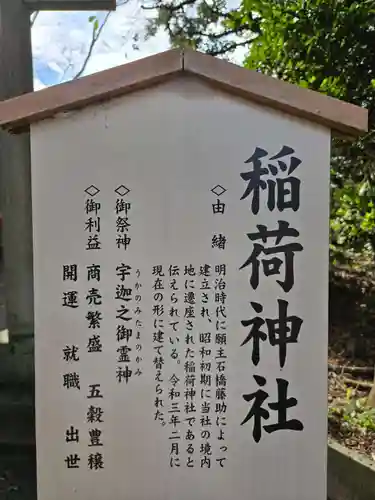 稲荷神社
◇由緒 明治時代に願主石橋藤助によって
建立され、昭和初期に当社の境内
地に遷座された稲荷神社であると
伝えられている。令和三年二月に
現在の形に建て替えられた。
◇御祭神 宇迦之御霊神
うかのみたまのかみ
◇御利益 商売繁盛 五穀豊穣
開運 就職 出世